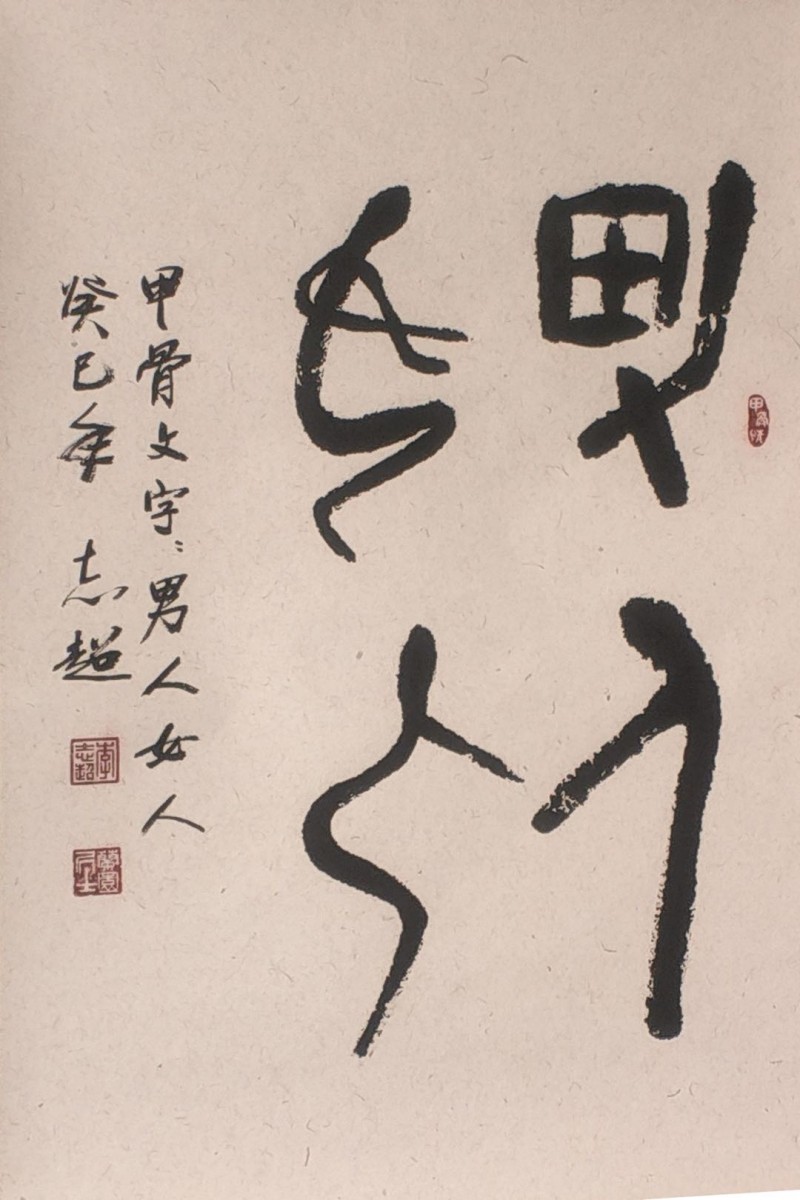 男人
女人
甲骨文字：男人女人
癸巳年 志超
李志超